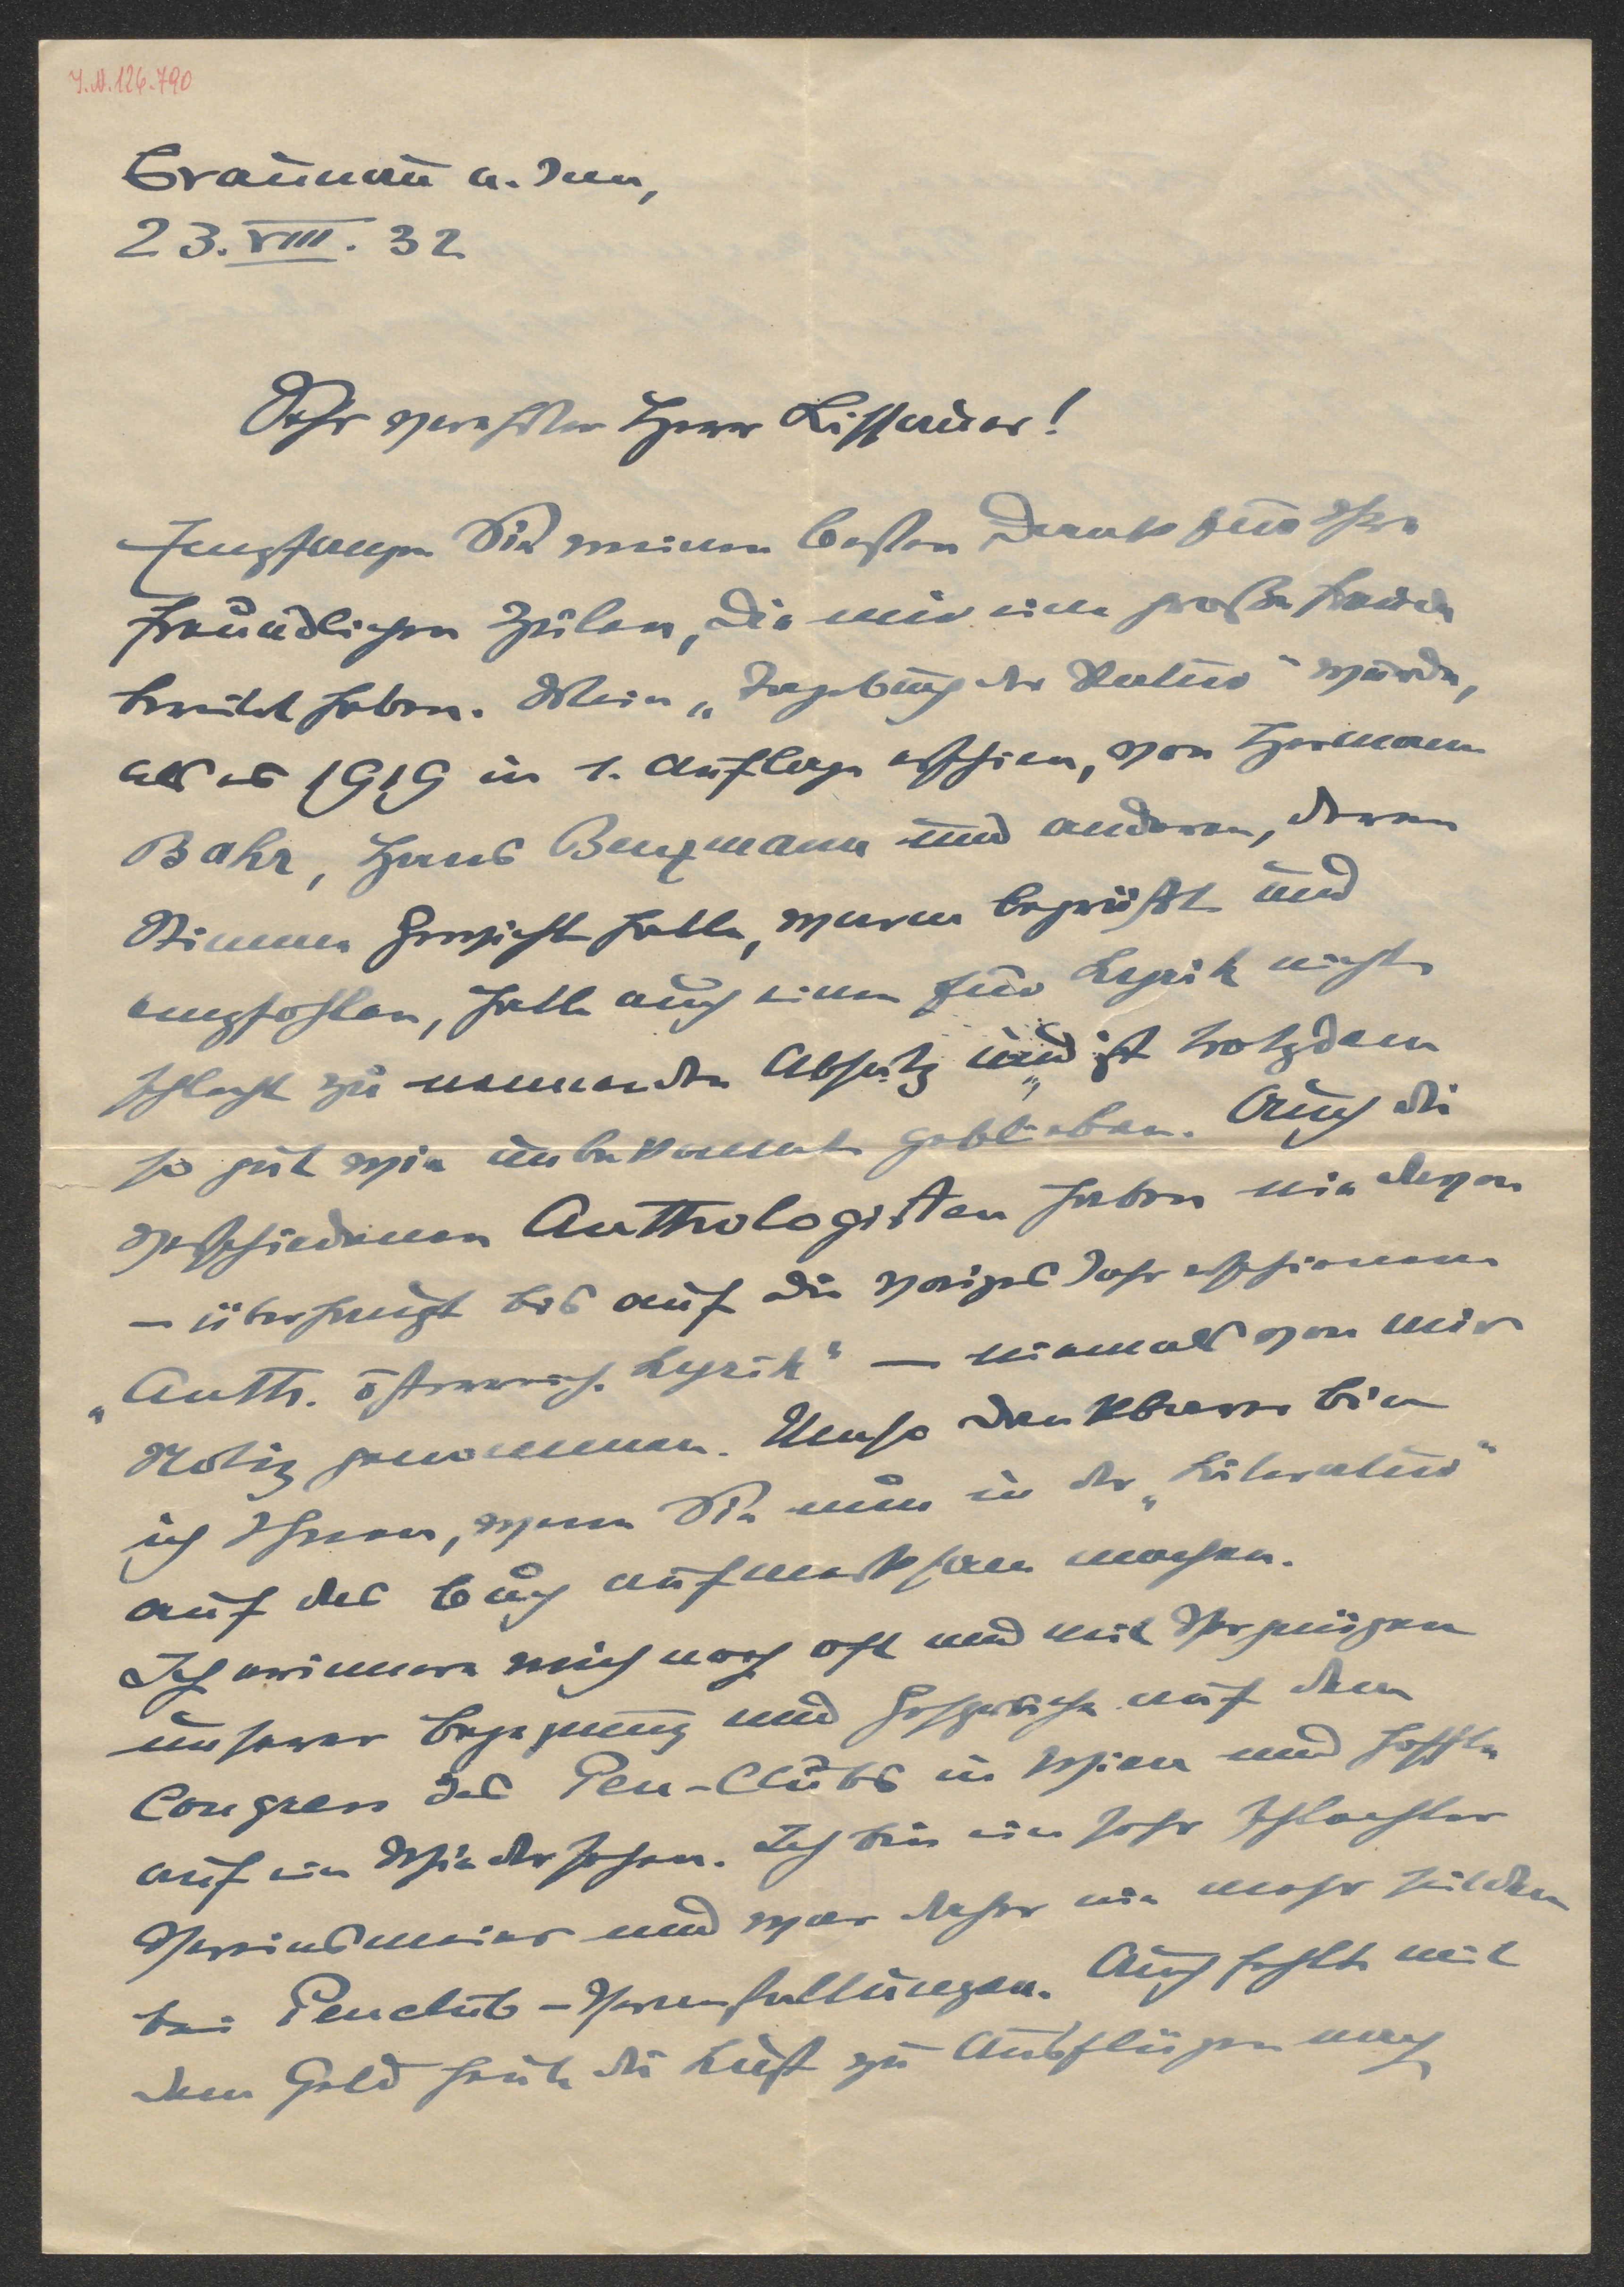 I.N. 126.790
Braunau a. Inn,
23. VIII. 32
Sehr verehrter Herr Lissauer!
Empfangen Sie meinen besten Dank für Ihre
freundlichen Zeilen, die mir eine große Freude
bereitet haben. Mein „Tagebuch der Natur" wurde,
als es 1919 in 1. Auflage erschien, von Hermann
Bahr, Hans Benzmann und anderen, deren
Stimme Gewicht hatte, warm begrüßt und
empfohlen, hatte auch einen für Lyrik nicht
schlecht zu nennenden Absatz und ist trotzdem
so gut wie unbekannt geblieben. Auch die
verschiedenen Anthologisten haben nie davon
— überhaupt bis auf die voriges Jahr erschienene
„Anth. österreich. Lyrik" — niemals von mir
Notiz genommen. Umso dankbarer bin
ich Ihnen, wenn Sie nun in der „Literatur"
auf das Buch aufmerksam machen.
Ich erinnere mich noch oft und mit Vergnügen
unserer Begegnung und Gespräche auf dem
Congress des Pen-Clubs in Wien und hoffe
auf ein Wiedersehen. Ich bin ein sehr schlechter
Vereinsmeier und war daher nie mehr seitdem
bei Penclub-Veranstaltungen. Auch fehlt mit
dem Geld heute die Lust zu Ausflügen nach